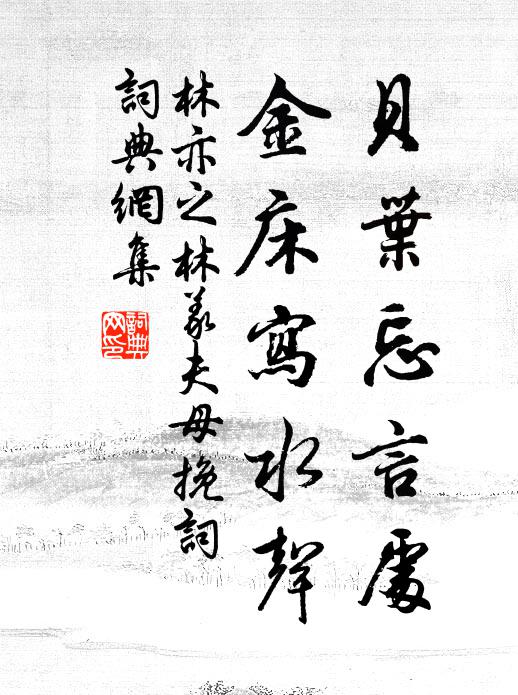 貝葉忘言處
金床寫水聲
林亦之林義夫母挽詞
詞典網集
詞典网印